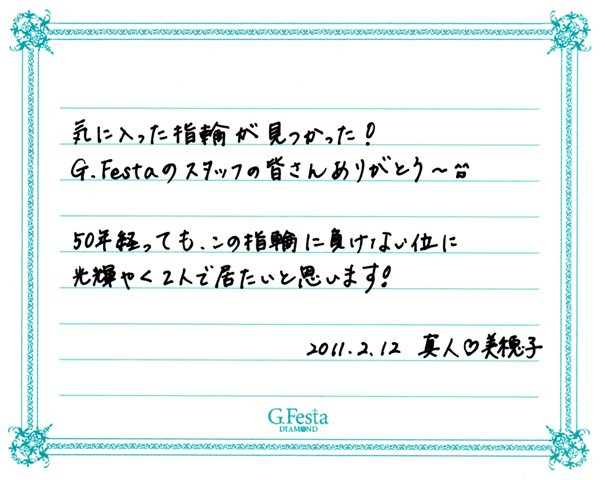 気に入った指輪が見つかった!
G.Festaのスタッフの皆さんありがとう〜
50年経っても、この指輪に負けない位に
光輝やく2人で居たいと思います!
2011.2.12 真人♡美穂子
G.Festa
DIAMOND